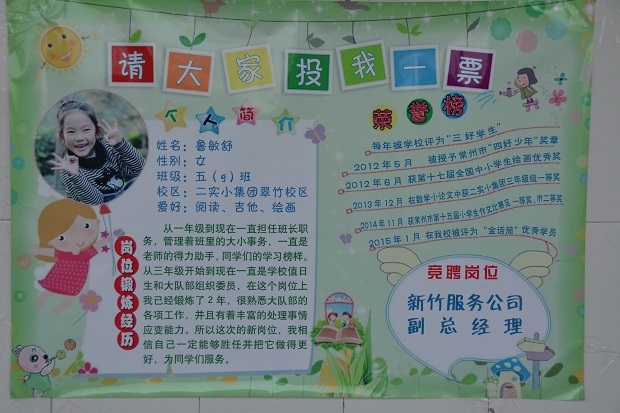 请大家投我一票
个人简介
姓名：鲁敏舒
性别：女
班级：五（9）班
校区：二实小集团翠竹校区
爱好：阅读、吉他、绘画
岗位锻炼经历
从一年级到现在一直担任班长职
务，管理着班里的大小事务，一直是
老师的得力助手，同学们的学习榜样。
从三年级开始到现在一直是学校值日
生和大队部组织委员，在这个岗位上
我已经锻炼了2年，很熟悉大队部的
各项工作，并且有着丰富的处理事情
应变能力。所以这次的新岗位，我相
信自己一定能够胜任并把它做得更
好，为同学们服务。
荣誉榜
每年被学校评为“三好学生”
2012年5月 被授予常州市“四好少年”奖章
2012年8月 获第十七届全国中小学生绘画优秀奖
2013年12月 在数学小论文中获二实小集团三年级组一等奖
2014年11月 获常州市第十五届小学生作文比赛区一等奖、市二等奖
2015年1月 在我校被评为“金话筒”优秀学员
竞聘岗位
新竹服务公司
副总经理